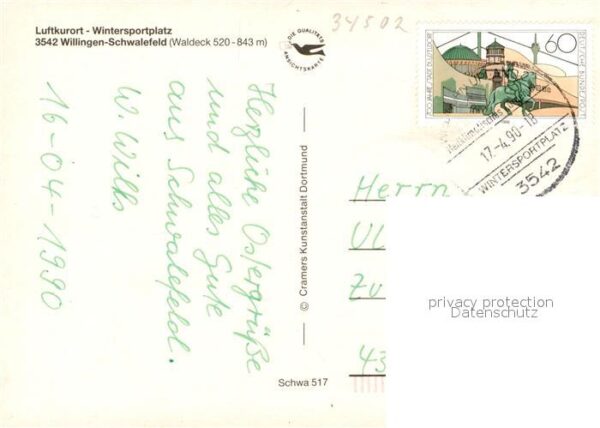 Luftkurort - Wintersportplatz
3542 Willingen-Schwalefeld (Waldeck 520 - 843 m)
DIE QUALITÄTS
ANSICHTSKARTE
34502
60
DEUTSCHE BUNDESPOST
700 JAHRE STADT DÜSSELDORF
17.-4.90-18
WINTERSPORTPLATZ
3542
Herzliche Ostergrüße
und alles Gute
aus Schwalefeld.
W. Wilks
16-04-1990
© Cramers Kunstanstalt Dortmund
Schwa 517
Herrn
Ul
Zu
43
privacy protection
Datenschutz